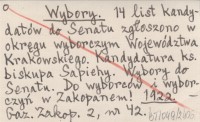 Wybory. 14 list kandy-
datów do Senatu zgłoszono w
okręgu wyborczym Województwa
Krakowskiego. Kandydatura ks.
biskupa Sapiehy. Wybory do
Senatu. Do wyborców i wybor-
czyń w Zakopanem! 1922. -
Gaz. Zakop. 2, nr 42.